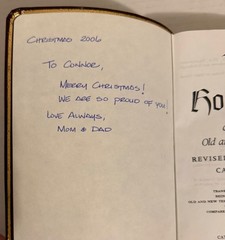 CHRISTMAS 2006
TO CONNOR,
MERRY CHRISTMAS!
WE ARE SO PROUD OF YOU!
LOVE ALWAYS,
MOM & DAD
Ho
Old a
REVISED
CA